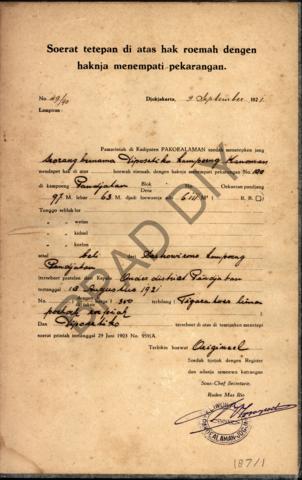 Soerat tetepan di atas hak roemah dengen
haknja menempati pekarangan.
No. 49/90 Djokjakarta, 9 September 1921.
Lampiran :
Pamarintah di Kadipaten PAKOEALAMAN soedah menetepken jang
Seorang bernama Diposetiko kampoeng Kanoman
mendapet hak di atas roemah, dengen haknja menempati pekarangan No. 100
di kampoeng Pandjatan Blok Desa No. Oekoeran pandjang
97 M. lebar 63 M. djadi loewasnja ada 6111 M² ( R. R.□)
Tonggo sebelah lor
„ wetan
„ kidoel
„ koelon
asal beli dari kampoeng
Pandjatan
terseboet petelan dari Kepala Onder district Pandjatan
tanggal 10 Augustus 1921
No. harga f 350 terbilang Tigaratoes limah
poeloeh roepiah
Dan Diposetiko terseboet di atas menetapi
soerat printah tertanggal 29 Juni 1903 No. 959|A.
Tertoelis boewat Origineel
Soedah tjotjok dengen Register
dan adanja semoewa katrangan
Sous-Chef Secretarie,
Raden Mas Rio
BPAD DIY
PAKOE-ALAMAN-JOGJA
1871